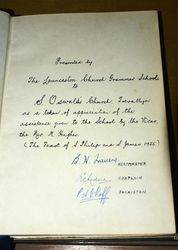 Presented by
The Launceston Church Grammar School
to
S Oswalds Church Trevallyn
as a token of appreciation of the
assistance given to the School by the Vicar,
the Rev. R
(The Feast of S Philip and S James
HEADMASTER
CHAPLAIN
SACRISTAN